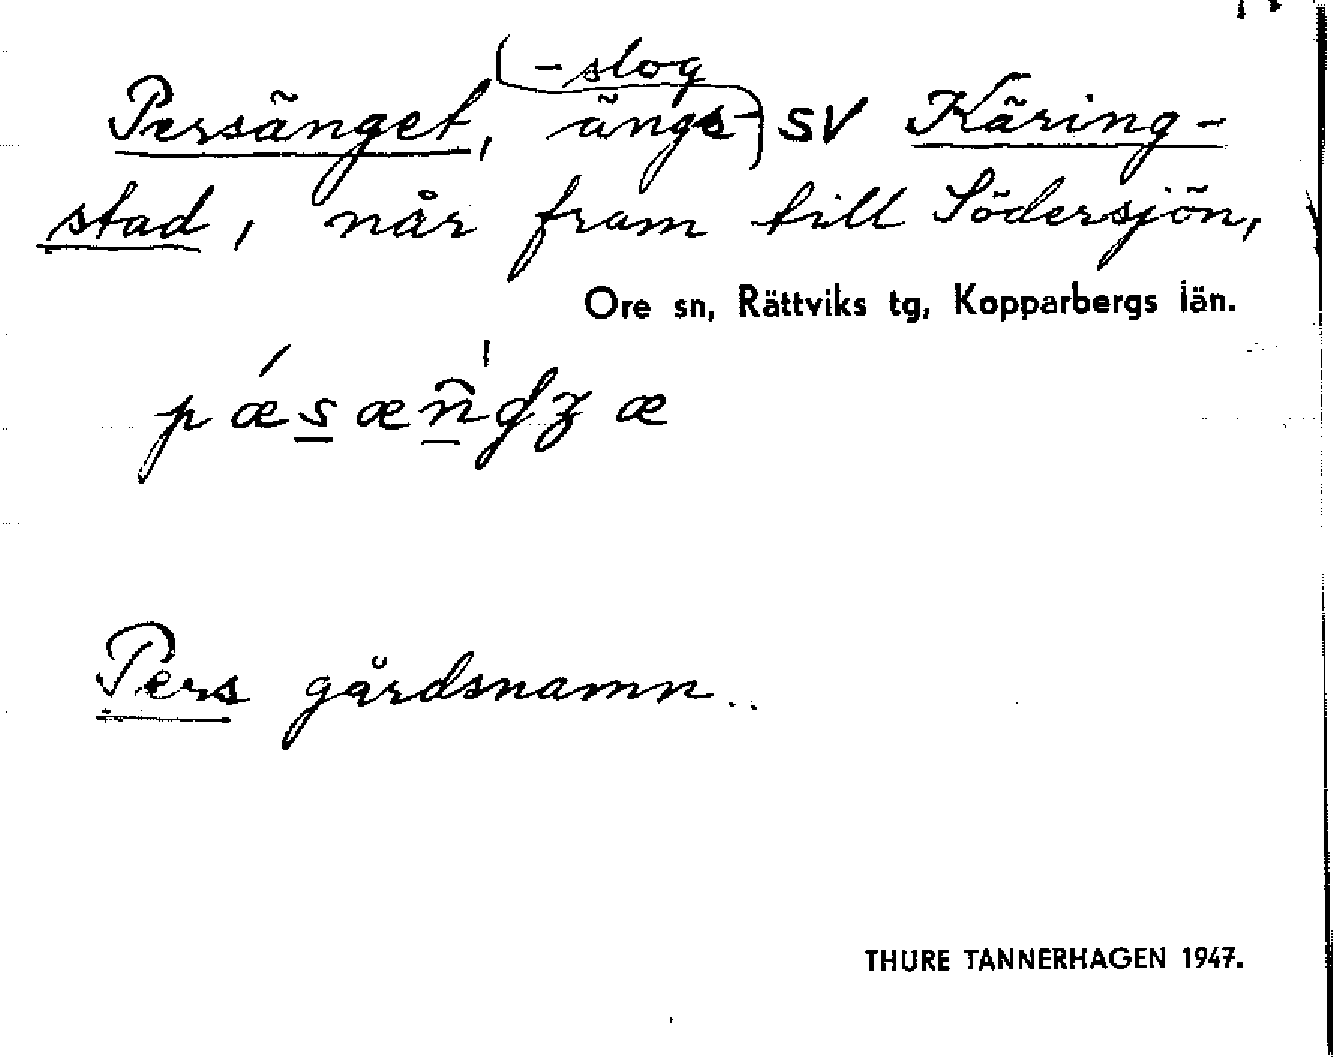 -slog
Persänget, ängs- SV Käring-
stad, når fram till Södersjön,
Ore sn, Rättviks tg, Kopparbergs län.
pǽsæn̂dzæ
Pers gårdsnamn..
THURE TANNERHAGEN 1947.